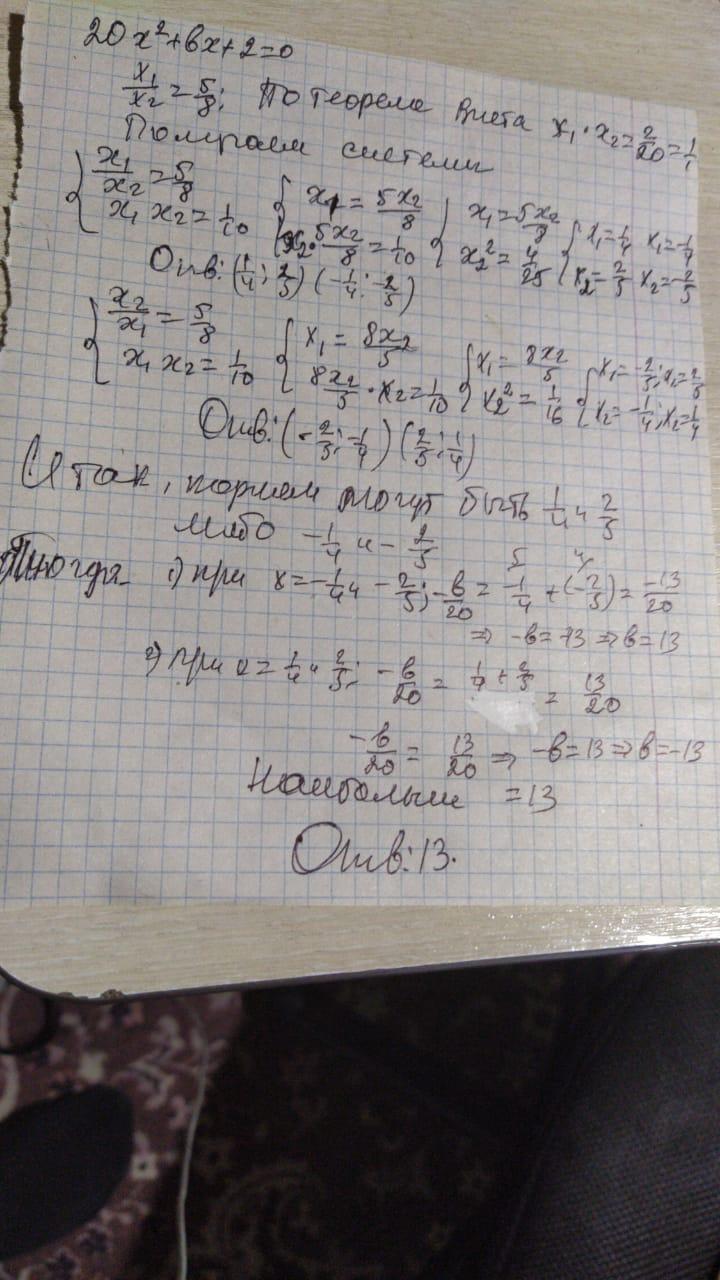 20x²+bx+2=0
x₁/x₂ = 5/8; По теореме Виета x₁·x₂=2/20=1/1
Получаем системы
{ x₁/x₂=5/8 { x₁ = 5x₂/8 { x₁=5x₂/8 { x₁=1/4 x₁=-1/4
x₁ x₂=1/10 x₂·5x₂/8=1/10 x₂²=4/25 x₂=2/5 x₂=-2/5
Отв: (1/4; 2/5) (-1/4; -2/5)
{ x₂/x₁=5/8 { x₁ = 8x₂/5 { x₁=8x₂/5 { x₁=-2/5; x₁=2/5
x₁ x₂=1/10 8x₂/5·x₂=1/10 x₂²=1/16 x₂=-1/4; x₂=1/4
Отв: (-2/5; -1/4) (2/5; 1/4)
Итак, корнем могут быть 1/4 и 2/5
либо -1/4 и -2/5
1) при x=-1/4 и -2/5; -b/20 = -1/4+(-2/5)=-13/20
⇒ -b=-13⇒b=13
2) при x=1/4 и 2/5; -b/20 = 1/4+2/5 = 13/20
-b/20 = 13/20 ⇒ -b=13⇒b=-13
=13
Отв: 13.